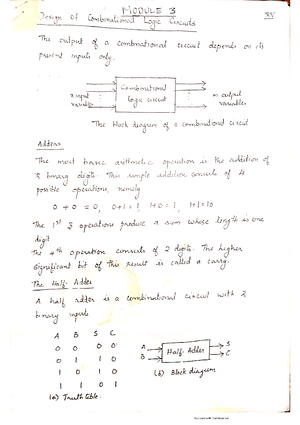 MODULE 3
Design Of Combinational Logic Circuits
The output of a combinational circuit depends on its
present inputs only.
n input
variables
Combinational
logic circuit
m output
variables
The block diagram of a combinational circuit
Adders
The most basic arithmetic operation is the addition of
2 binary digits. This simple addition consists of 4
possible operations, namely
0 + 0 = 0, 0+1=1, 1+0=1, 1+1=10
The 1st 3 operations produce a sum whose length is one
digit
The 4th operation consists of 2 digits. The higher
significant bit of this result is called a carry.
The Half-Adder
A half adder is a combinational circuit with 2
binary inputs
A B S C
0 0 0 0
0 1 1 0
1 0 1 0
1 1 0 1
(a) Truth table.
A
B
Half-Adder
S
C
(b) Block diagram